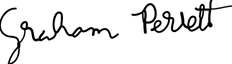 Graham Pervett